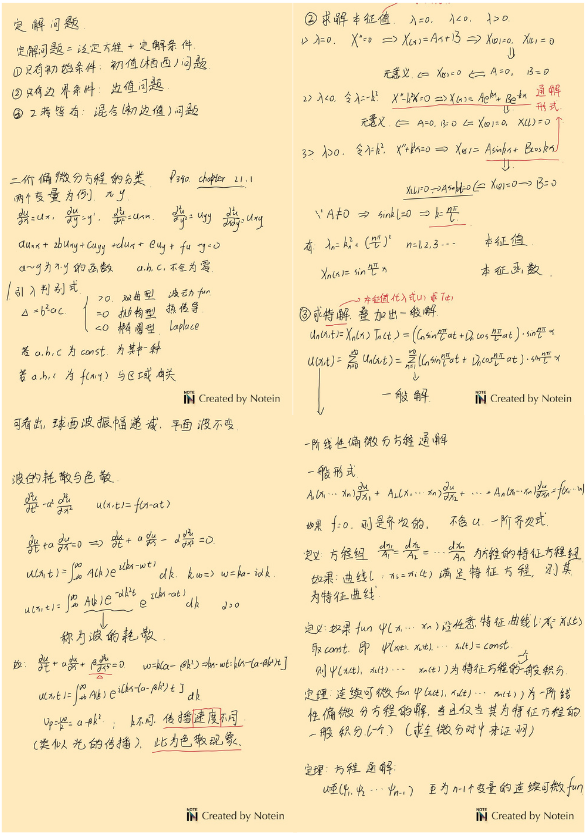 定解问题.
定解问题 = 泛定方程 + 定解条件.
①只有初始条件: 初值(柯西)问题
②只有边界条件: 边值问题.
③ 二者皆有: 混合(初边值)问题
二阶偏微分方程的分类 P390. chapter 21.1
两个变量为例. x y
∂u/∂x = ux, ∂u/∂y = y', ∂²u/∂x² = uxx, ∂²u/∂y² = uyy ∂²u/∂x∂y = uxy
auxx + 2buxy + cuyy + dux + euy + fu - g = 0
a~g 为 x.y 的函数 a.b.c. 不全为零.
引入判别式
Δ = b² - ac
>0. 双曲型 波动 fun
=0 抛物型 热传导
<0 椭圆型 Laplace
若 a.b.c 为 const. 为其中一种
若 a.b.c 为 f(x.y) 与区域有关
NOTE IN Created by Notein
② 求解本征值. λ=0. λ<0. λ>0
1) λ=0. X''=0 ⇒ X(x)=Ax+B ⇒ X(0)=0. X(l)=0
无意义 ⇐ X(x)=0 ⇐ A=0, B=0
2) λ<0. 令λ=-k². X''-k²X=0 ⇒ X(x)=Ae^kx + Be^-kx 通解形式
无意义 ⇐ A=0. B=0 ⇐ X(0)=0, X(l)=0
3) λ>0. 令λ=k². X''+k²X=0 ⇒ X(x)= Asinkx + Bcoskx
X(l)=0→Asinkl=0 ⇐ X(0)=0 → B=0
∵ A≠0 ⇒ sinkl=0 ⇒ k=nπ/l
有 λn=kn²=(nπ/l)² n=1.2.3... 本征值.
Xn(x)=sin nπ/l x 本征函数.
本征值代入式(1) 求T(t)
③求特解. 叠加出一般解.
Un(x.t)=Xn(x)Tn(t)=(Cn sin nπ/l at + Dn cos nπ/l at)·sin nπ/l x
U(x.t)=∑Un(x.t)=∑(Cn sin nπ/l at + Dn cos nπ/l at)·sin nπ/l x
一般解
NOTE IN Created by Notein
可看出, 球面波振幅递减, 平面波不变
波的耗散与色散.
u(x.t)=f(x-at)
u(x.t)=∫A(k)e^i(kx-wt) dk. k.w ⇒ w=ka-idk.
u(x.t)=∫A(k)e^-αk²t e^ik(x-at) dk α>0
称为波的耗散.
u(x.t)=∫A(k)e^i[kx-(a-βk²)t] dk
Vp=w/k=a-βk². ; k不同. 传播速度不同.
(类似光的传播). 此为色散现象.
NOTE IN Created by Notein
一阶线性偏微分方程通解
一般形式
A1(x1...xn)∂u/∂x1 + A2(x1...xn)∂u/∂x2 + ... + An(x1...xn)∂u/∂xn = f(x1...xn)
如果 f=0. 则是齐次的, 不含u. 一阶齐次式.
定义 方程组 dx1/A1 = dx2/A2 = ... dxn/An 为方程的特征方程组
如果: 曲线l: xi=xi(t) 满足特征方程, 则其
为特征曲线.
定义: 如果 fun ψ(x1...xn) 沿任意特征曲线l: xi=xi(t)
取const. 即 ψ(x1(t), x2(t) ... xn(t))=const
则ψ(x1(t), x2(t) ... xn(t))为特征方程的一般积分.
定理: 连续可微fun ψ(x1(t), x2(t) ... xn(t)) 为一阶线
性偏微分方程的解, 当且仅当其为特征方程的
一般积分(一个) (求全微分时来证明)
定理: 方程通解:
u=Φ(ψ1, ψ2 ... ψn-1) Φ为n-1个变量的连续可微fun
NOTE IN Created by Notein